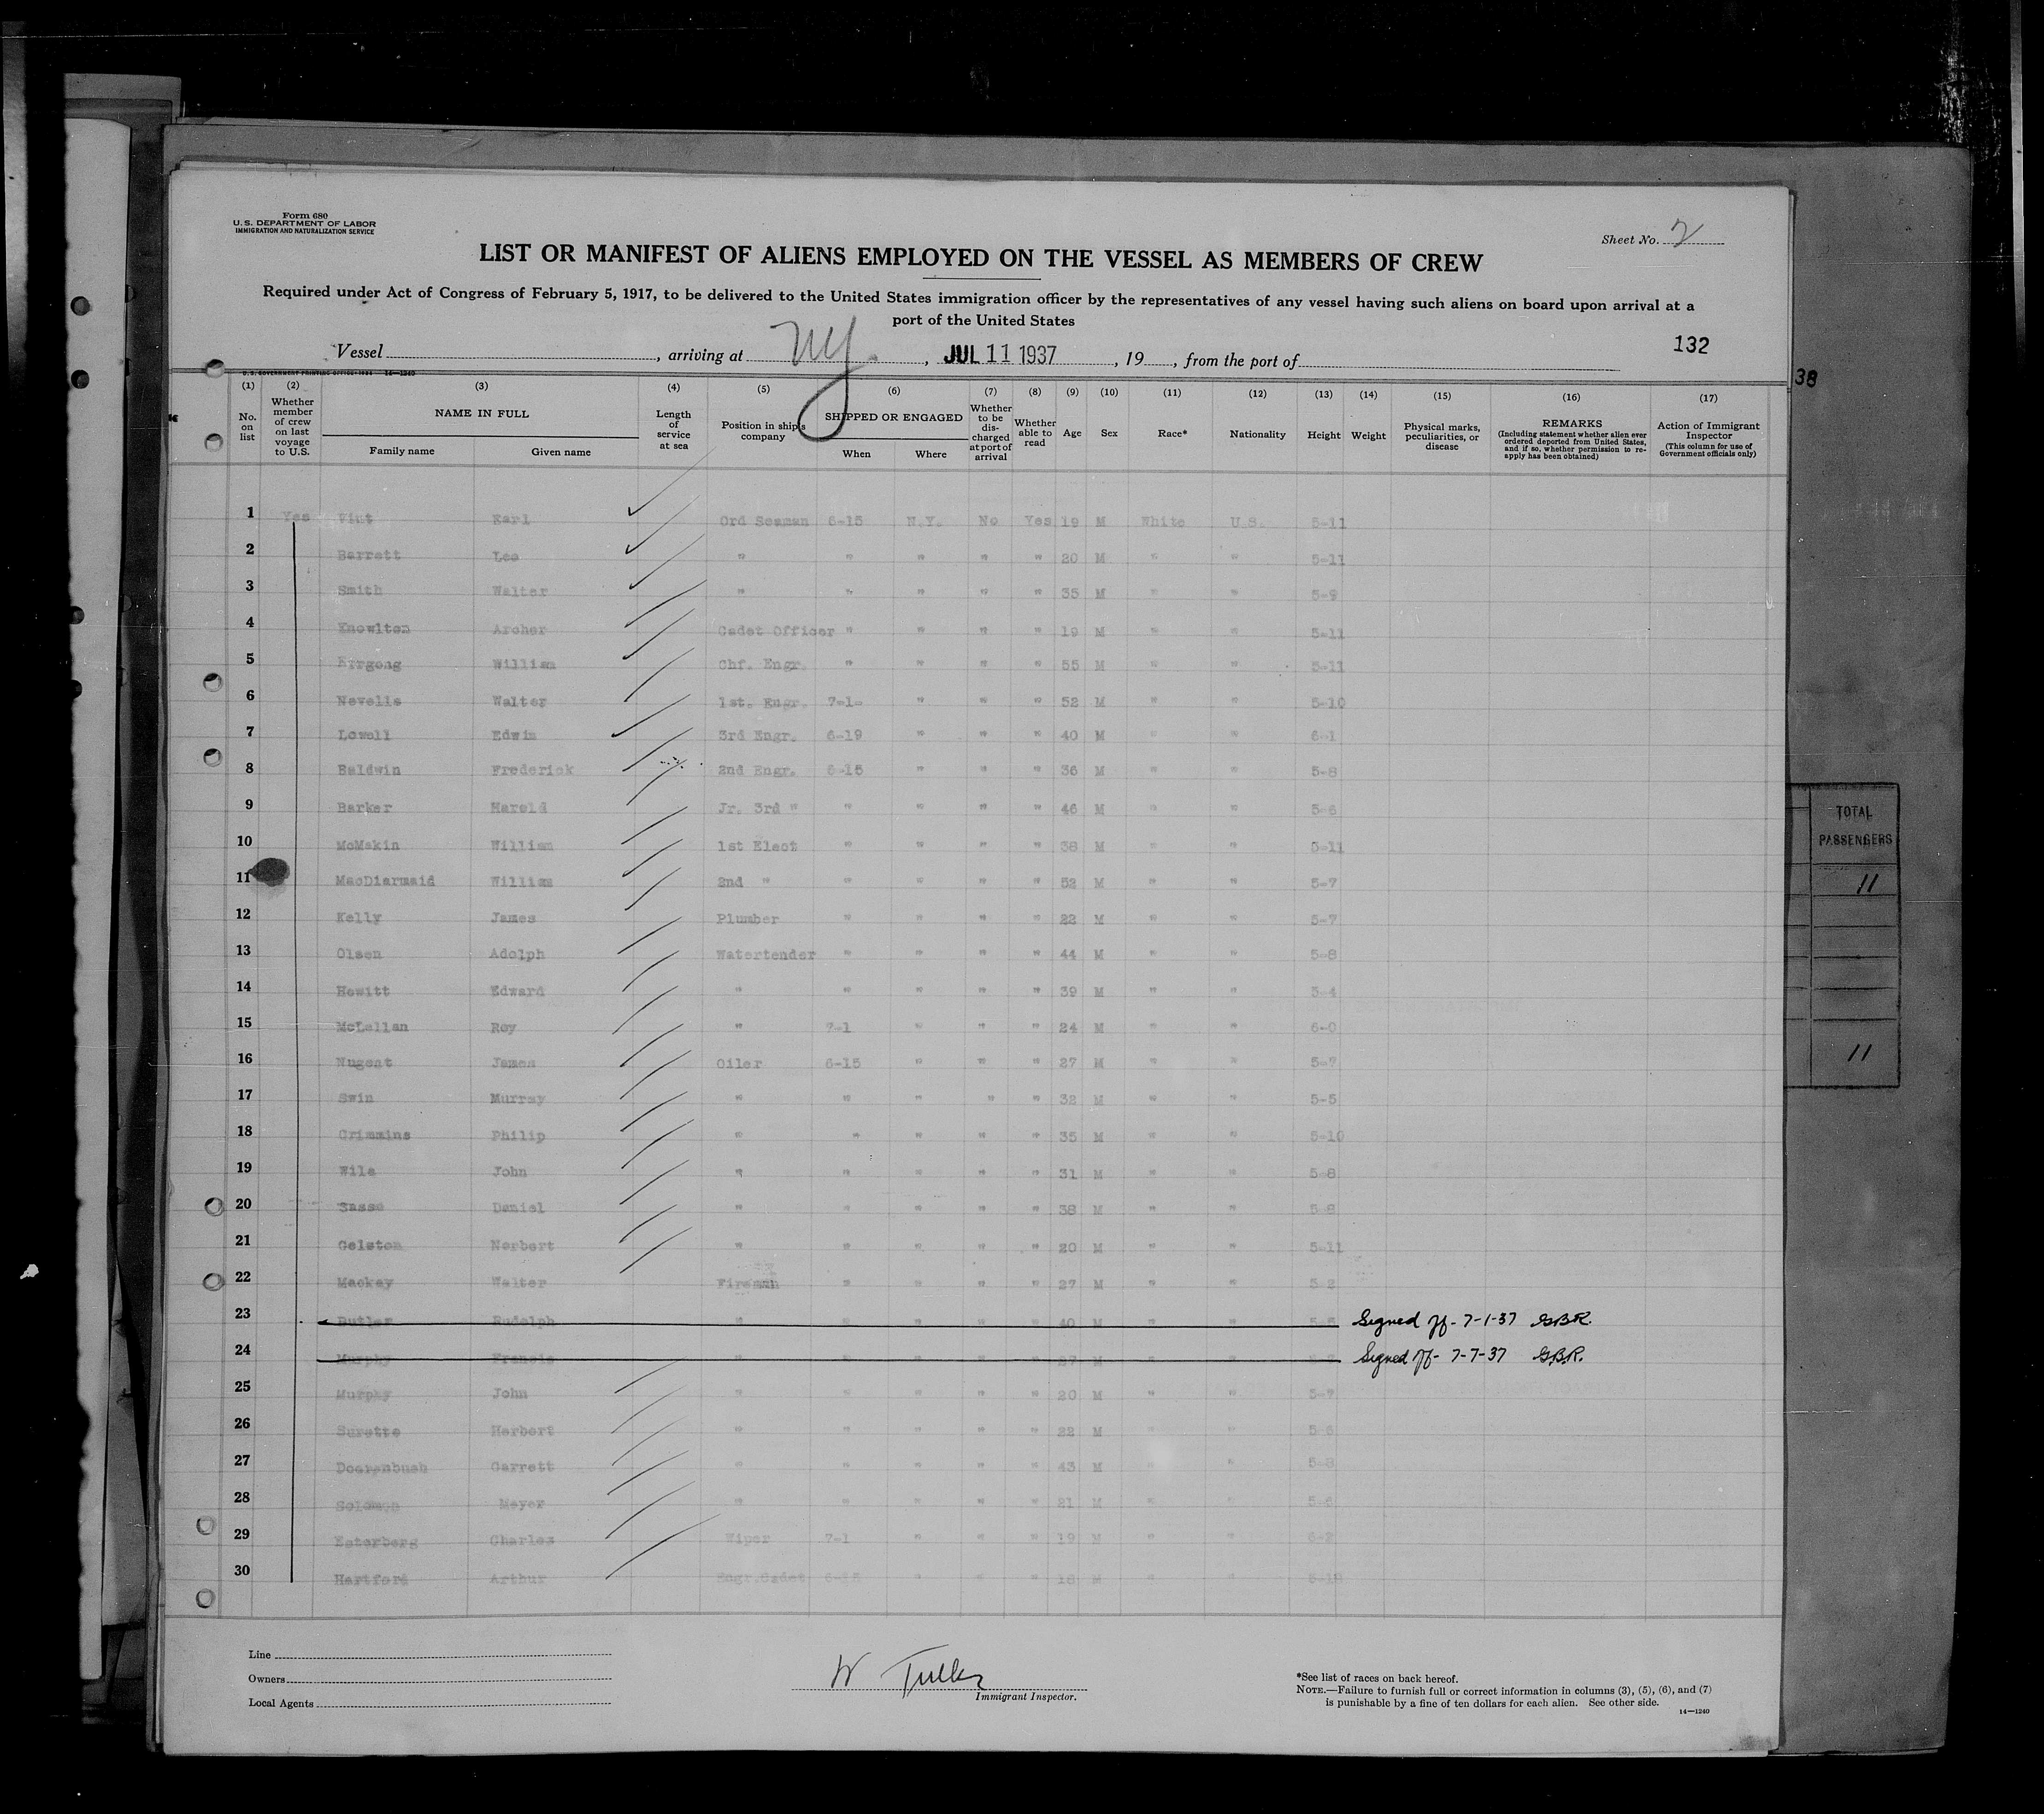 Form 680
U. S. DEPARTMENT OF LABOR
IMMIGRATION AND NATURALIZATION SERVICE
Sheet No. 2
LIST OR MANIFEST OF ALIENS EMPLOYED ON THE VESSEL AS MEMBERS OF CREW
Required under Act of Congress of February 5, 1917, to be delivered to the United States immigration officer by the representatives of any vessel having such aliens on board upon arrival at a
port of the United States
Vessel , arriving at NY. , JUL 11 1937 , 19 , from the port of
132
38
U. S. GOVERNMENT PRINTING OFFICE 14—1240
(1) No. on list (2) Whether member of crew on last voyage to U.S. (3) NAME IN FULL Family name Given name (4) Length of service at sea (5) Position in ship's company (6) SHIPPED OR ENGAGED When Where (7) Whether to be discharged at port of arrival (8) Whether able to read (9) Age (10) Sex (11) Race* (12) Nationality (13) Height (14) Weight (15) Physical marks, peculiarities, or disease (16) REMARKS (Including statement whether alien ever ordered deported from United States, and if so, whether permission to re-apply has been obtained) (17) Action of Immigrant Inspector (This column for use of Government officials only)
1 Yes Vint Earl Ord Seaman 6-15 N.Y. No Yes 19 M White U.S. 5-11
2 Barrett Leo " " " " " 20 M " " 5-11
3 Smith Walter " " " " " 35 M " " 5-9
4 Knowlton Archer Cadet Officer " " " " 19 M " " 5-11
5 William Chf. Engr. " " " " 55 M " " 5-11
6 Nevells Walter 1st. Engr. 7-1- " " " 52 M " " 5-10
7 Lowell Edwin 3rd Engr. 6-19 " " " 40 M " " 6-1
8 Baldwin Frederick 2nd Engr. 6-15 " " " 36 M " " 5-8
9 Barker Harold Jr. 3rd " " " " " 46 M " " 5-6
10 McMakin William 1st Elect " " " " 38 M " " 5-11
11 MacDiarmaid William 2nd " " " " " 52 M " " 5-7
12 Kelly James Plumber " " " " 22 M " " 5-7
13 Olsen Adolph Watertender " " " " 44 M " " 5-8
14 Hewitt Edward " " " " " 39 M " " 5-4
15 McLellan Roy " 7-1 " " " 24 M " " 6-0
16 Nugent James Oiler 6-15 " " " 27 M " " 5-7
17 Swin Murray " " " " " 32 M " " 5-5
18 Crimmins Philip " " " " " 35 M " " 5-10
19 Wile John " " " " " 31 M " " 5-8
20 Sasso Daniel " " " " " 38 M " " 5-8
21 Gelston Norbert " " " " " 20 M " " 5-11
22 Mackey Walter Fireman " " " " 27 M " " 5-2
23 Butler Rudolph " " " " " 40 M " " Signed off - 7-1-37 G.B.R.
24 Murphy Francis " " " " " 27 M " " Signed off - 7-7-37 G.B.R.
25 Murphy John " " " " " 20 M " " 5-7
26 Surette Herbert " " " " " 22 M " " 5-6
27 Doerenbush Garrett " " " " " 43 M " " 5-8
28 Solomon Meyer " " " " " 21 M " "
29 Esterberg Charles Wiper 7-1 " " " 19 M " " 6-2
30 Hartford Arthur Engr.Cadet 6-15 " " " 18 M " "
TOTAL PASSENGERS
11
11
Line
Owners
Local Agents
Immigrant Inspector.
*See list of races on back hereof.
NOTE.—Failure to furnish full or correct information in columns (3), (5), (6), and (7)
is punishable by a fine of ten dollars for each alien. See other side.
14—1240